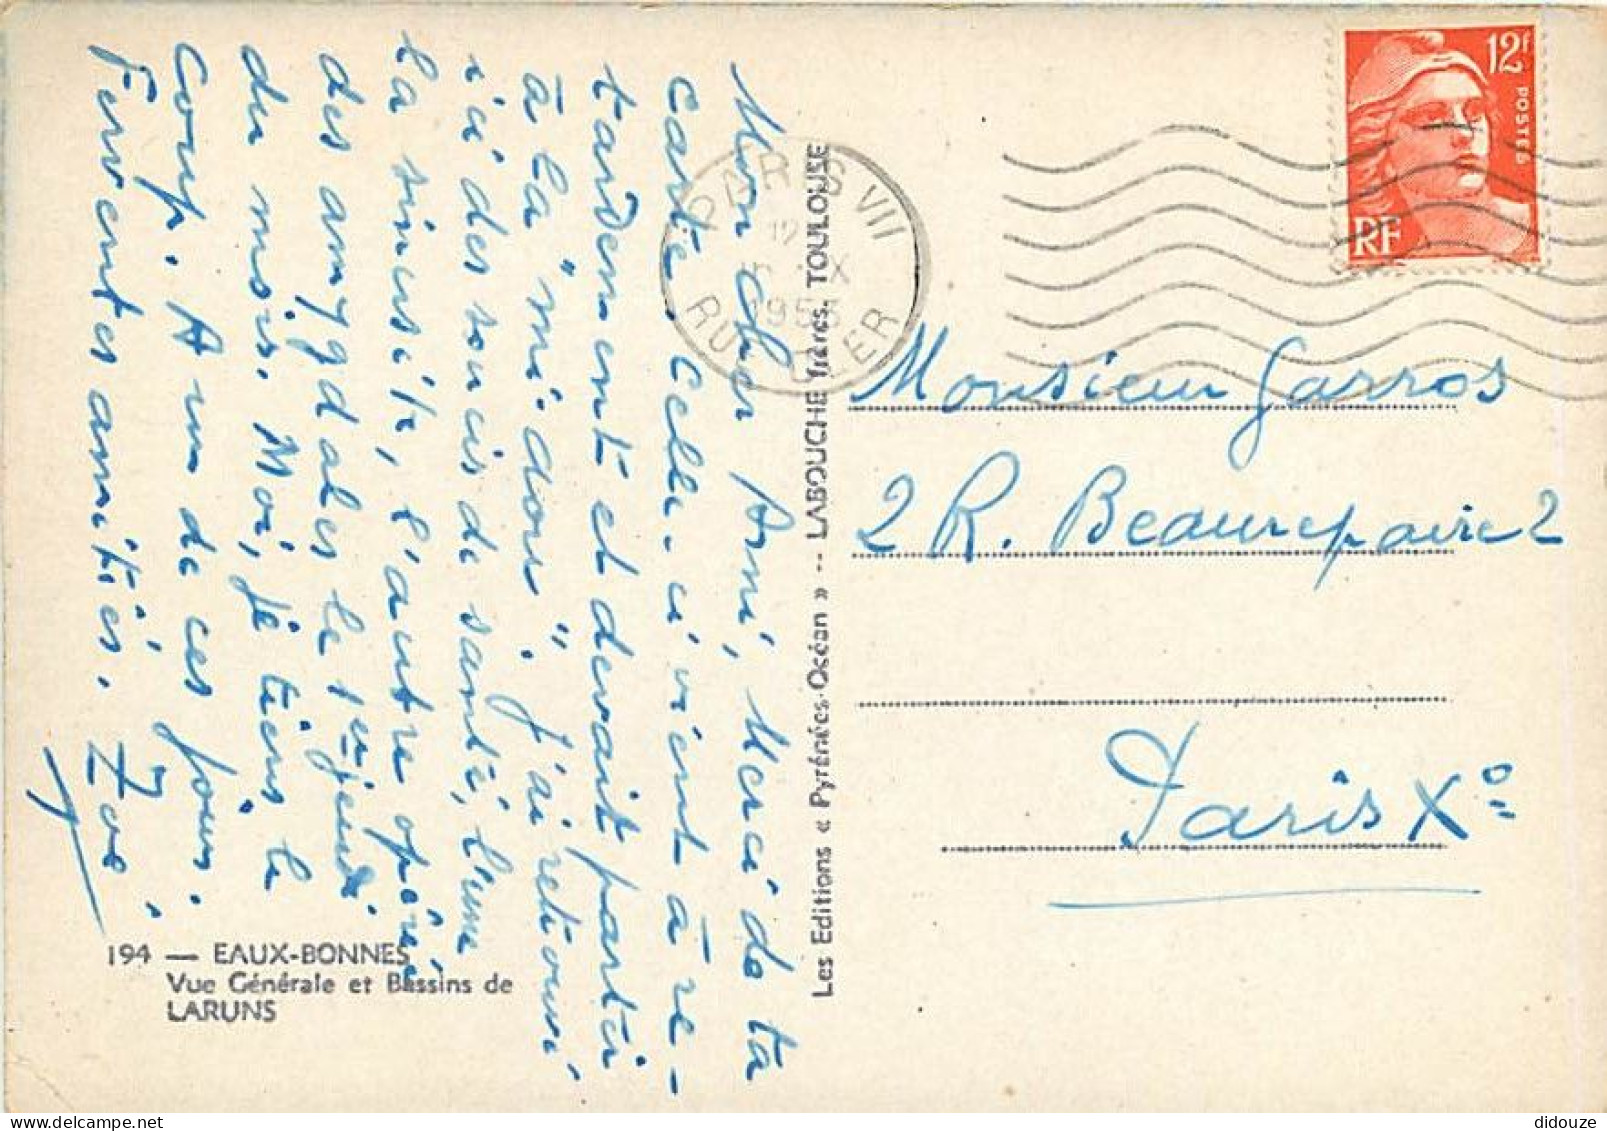 Mon cher Ami, Merci de ta
carte. Celle-ci vient à re-
tardement et devrait partir
à la "mi-dour". J'ai retrouvé
ici des soucis de santé, l'une
la sinusite, l'autre opérée
des amygdales le 1er jeudi
du mois. Moi, je tiens le
coup. A un de ces jours.
Ferventes amitiés. Zoé.
194 — EAUX-BONNES
Vue Générale et Bassins de
LARUNS
Les Editions « Pyrénées-Océan » -- LABOUCHE frères, TOULOUSE
PARIS VII
12
1955
RU CLER
12f
POSTES
RF
Monsieur Garros
2 R. Beaurepaire 2
Paris Xº
didouze